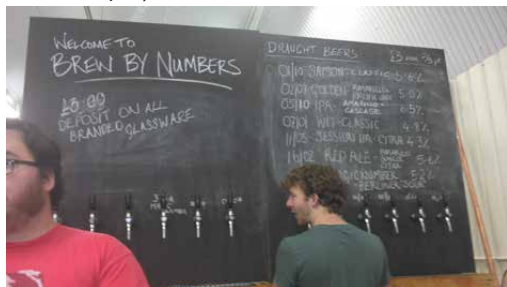 WELCOME TO
BREW BY NUMBERS
£5.00
DEPOSIT ON ALL
BRANDED GLASSWARE
DRAUGHT BEERS:
01/10 SAISON CLASSIC 5.6%
02/01 GOLDEN AMARILLO+ 5.0%
05/10 IPA AMARILLO+ CASCADE 6.5%
07/01 WIT-CLASSIC 4.8%
11/05 SESSION IPA-CITRA 4.3%
16/02 RED ALE CITRA
NUMBER 5.2%
-BERLINER SOUR